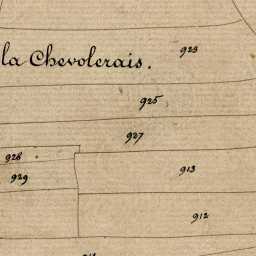 923
la Chevolerais.
925
927
928
913
929
912